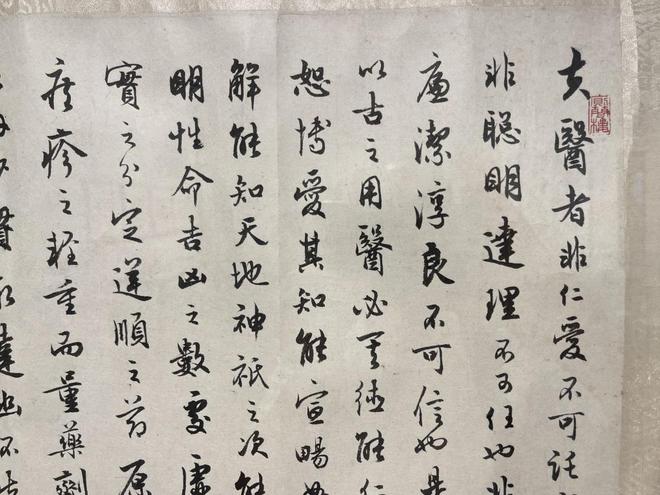 夫醫者非仁愛不可託
非聰明達理不可任也非
廉潔淳良不可信也是
以古之用醫必選德能仁
恕博愛其知能宣暢
解能知天地神祇之次能
明性命吉凶之數處虛
實之分定逆順之節原
疾疹之輕重而量藥劑
貫幽達幽不失